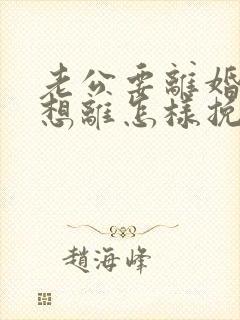 老公要離婚
想離怎樣挽
趙海峰